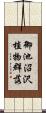 御池沼沢
植物群落